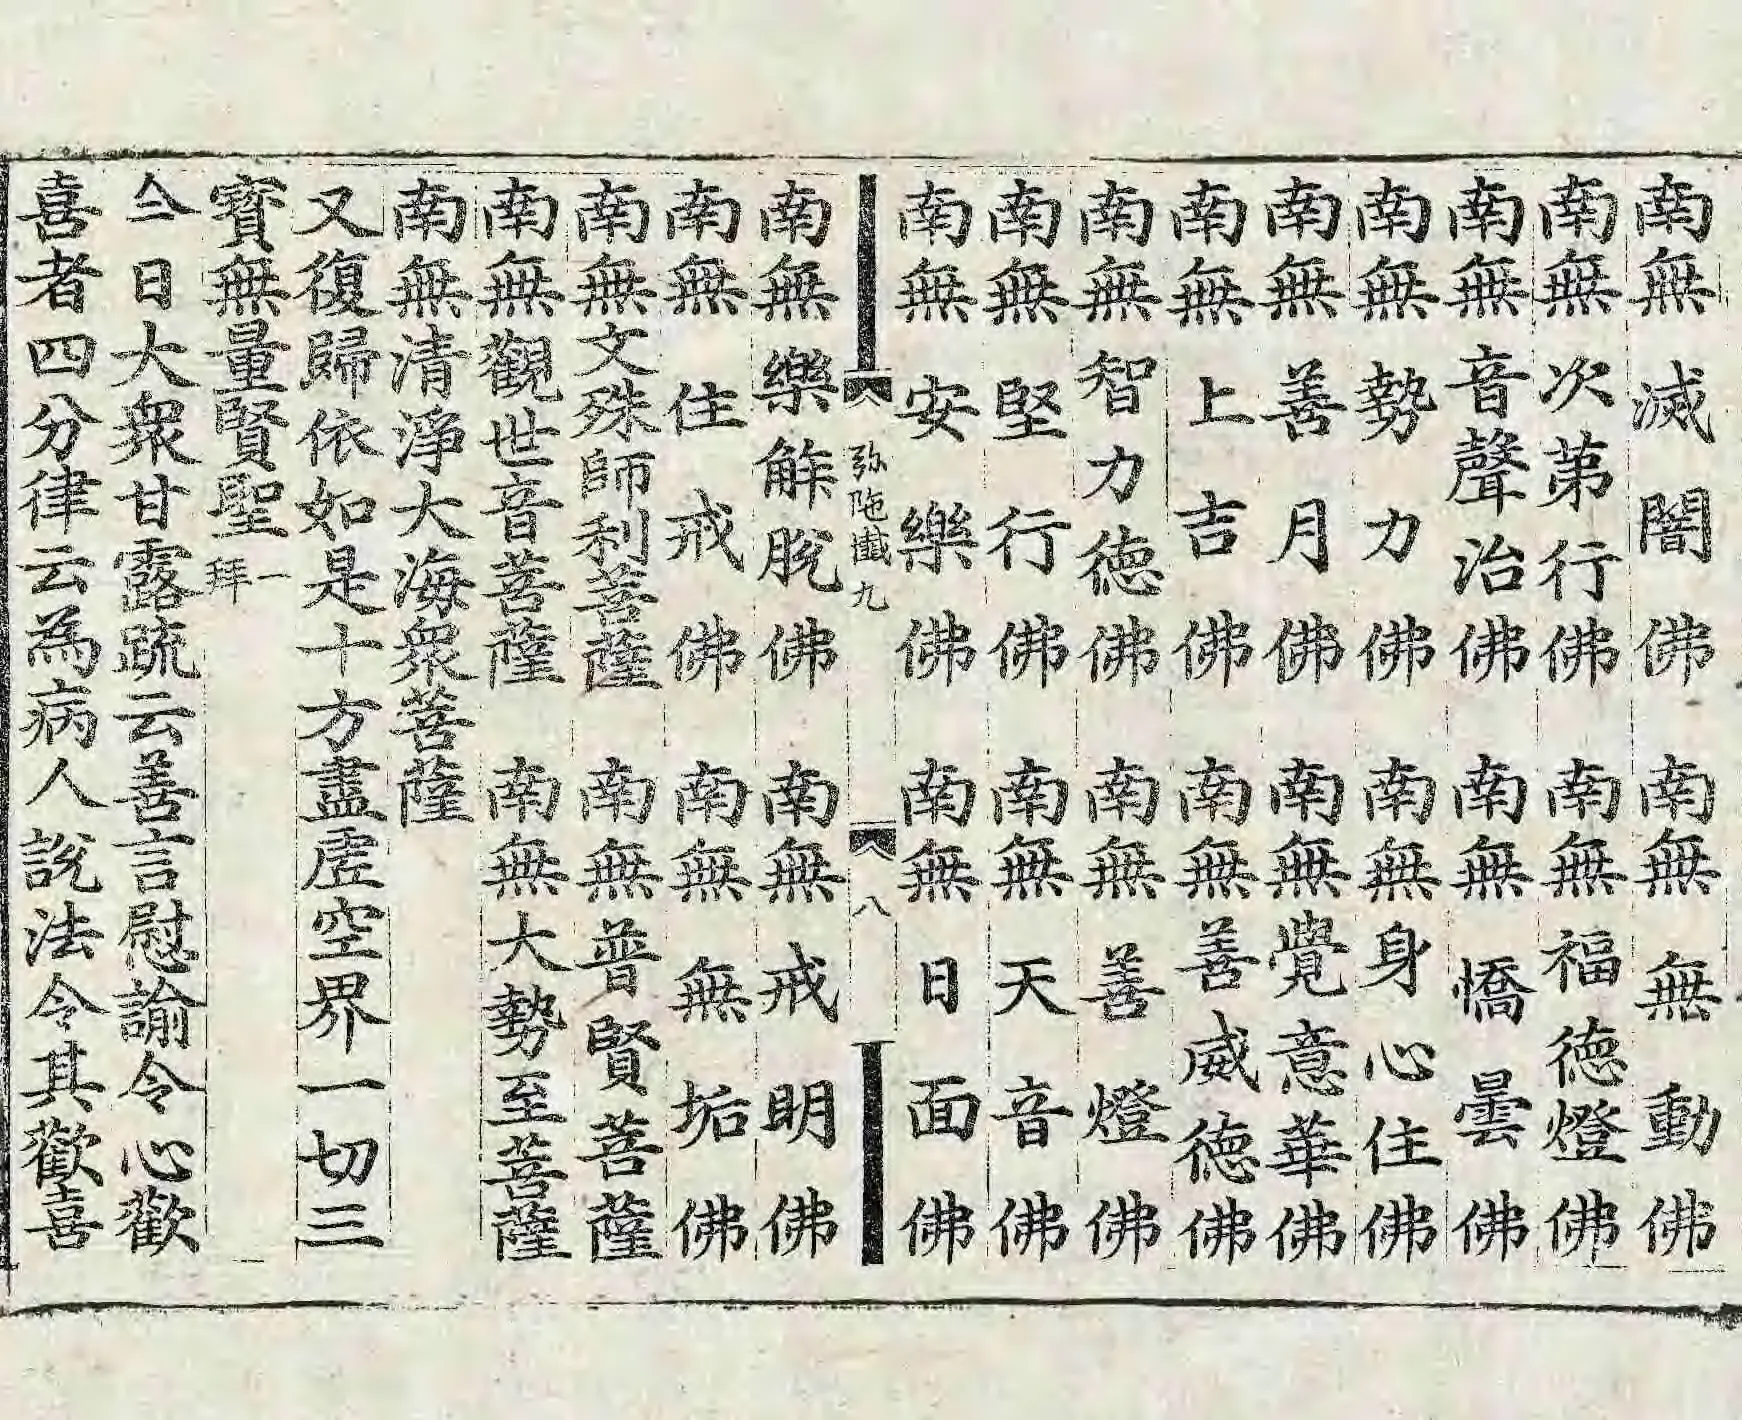 南無滅闇佛 南無無動佛
南無次第行佛 南無福德燈佛
南無音聲治佛 南無憍曇佛
南無勢力佛 南無身心住佛
南無善月佛 南無覺意華佛
南無上吉佛 南無善威德佛
南無智力德佛 南無善燈佛
南無堅行佛 南無天音佛
南無安樂佛 南無日面佛
弥陁懴九 八
南無樂解脫佛 南無戒明佛
南無住戒佛 南無無垢佛
南無文殊師利菩薩 南無普賢菩薩
南無觀世音菩薩 南無大勢至菩薩
南無清淨大海衆菩薩
又復歸依如是十方盡虛空界一切三
寳無量賢聖一拜
今日大衆甘露疏云善言慰諭令心歡
喜者四分律云為病人說法令其歡喜